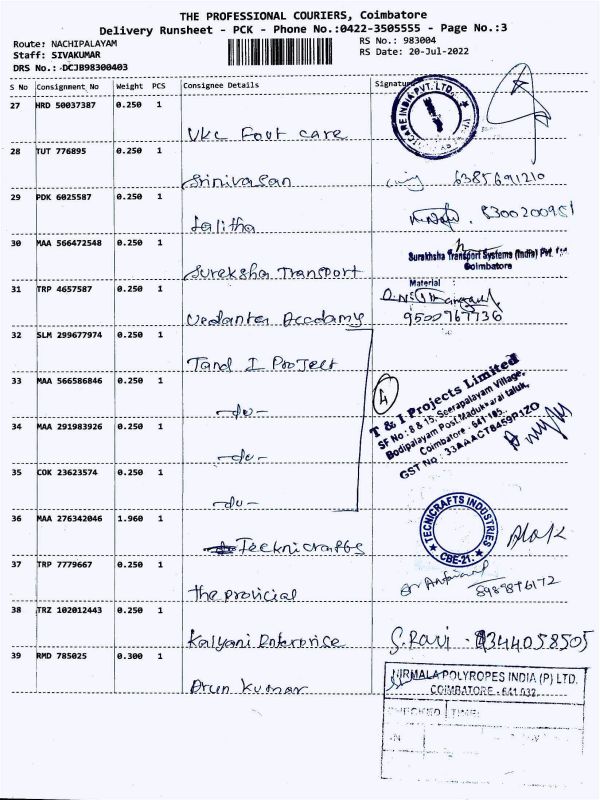 THE PROFESSIONAL COURIERS, Coimbatore
Delivery Runsheet - PCK - Phone No.:0422-3505555 - Page No.:3
Route: NACHIPALAYAM
RS No.: 983004
Staff: SIVAKUMAR
RS Date: 20-Jul-2022
DRS No.: DCJB98300403
S No Consignment No Weight PCS Consignee Details Signature
27 HRD 50037387 0.250 1
VKC Foot care
28 TUT 776895 0.250 1
Srinivasan 6385691210
29 PDK 6025587 0.250 1
Lalitha 8300200951
30 MAA 566472548 0.250 1
Sureksha Transport
Surakhsha Transport Systems (India) Pvt. Ltd
Coimbatore
31 TRP 4657587 0.250 1
Material :
Vedanta Accadamy 9500767736
32 SLM 299677974 0.250 1
Tand I Project
33 MAA 566586846 0.250 1
-do-
4
T & I Projects Limited
SF No : 8 & 15, Seerapalayam Village,
Bodipalayam Post, Madukkarai taluk,
Coimbatore - 641 105.
GST No : 33AAACT8459P1ZO
34 MAA 291983926 0.250 1
-do-
35 COK 23623574 0.250 1
-do-
36 MAA 276342046 1.960 1
TECNICRAFTS INDUSTRIES
CBE-21.
Teeknicrafts
37 TRP 7779667 0.250 1
The provicial
38 TRZ 102012443 0.250 1
Kalyani Enterprise S. Ravi - 9344058505
39 RMD 785025 0.300 1
Arun Kumar
NIRMALA POLYROPES INDIA (P) LTD.
COIMBATORE - 641 032.
CHECKED TIME: